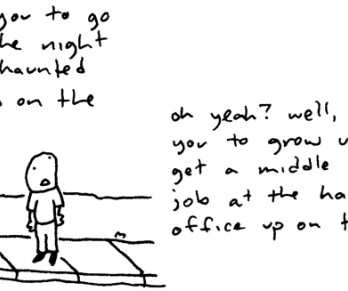 you to go
the night
haunted
on the
oh yeah? well,
you to grow
get a middle
job at the
office up on